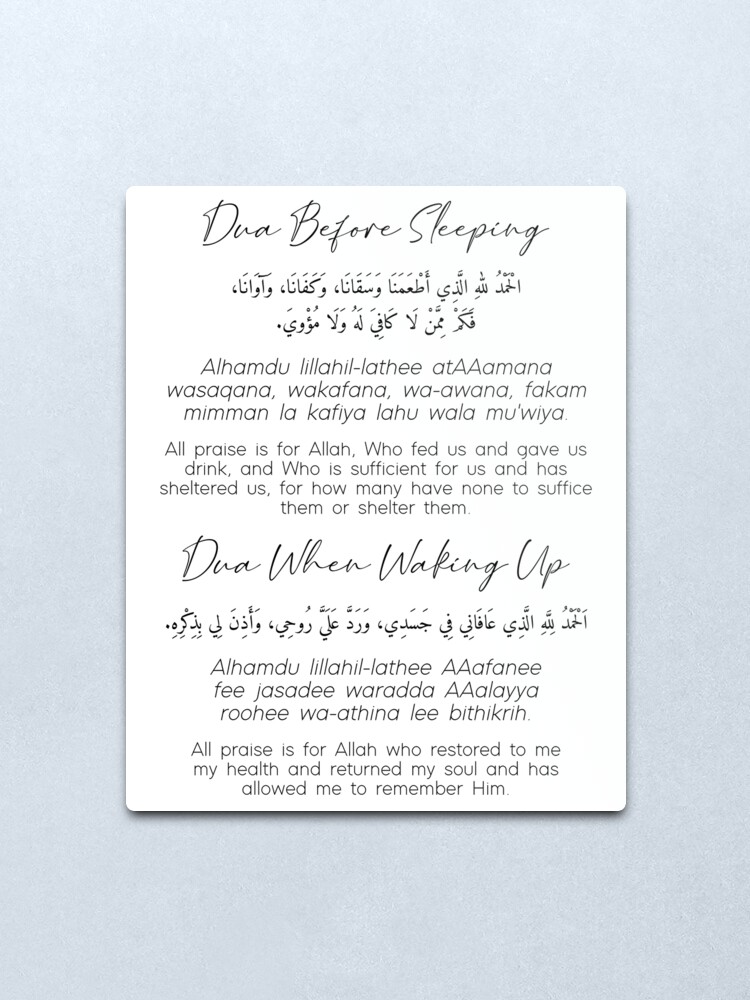 Dua Before Sleeping
الْحَمْدُ لِلَّهِ الَّذِي أَطْعَمَنَا وَسَقَانَا، وَكَفَانَا، وَآوَانَا،
فَكَمْ مِمَّنْ لَا كَافِيَ لَهُ وَلَا مُؤْوِيَ.
Alhamdu lillahil-lathee atAAamana
wasaqana, wakafana, wa-awana, fakam
mimman la kafiya lahu wala mu'wiya.
All praise is for Allah, Who fed us and gave us
drink, and Who is sufficient for us and has
sheltered us, for how many have none to suffice
them or shelter them.
Dua When Waking Up
اَلْحَمْدُ لِلَّهِ الَّذِي عَافَانِي فِي جَسَدِي، وَرَدَّ عَلَيَّ رُوحِي، وَأَذِنَ لِي بِذِكْرِهِ.
Alhamdu lillahil-lathee AAafanee
fee jasadee waradda AAalayya
roohee wa-athina lee bithikrih.
All praise is for Allah who restored to me
my health and returned my soul and has
allowed me to remember Him.